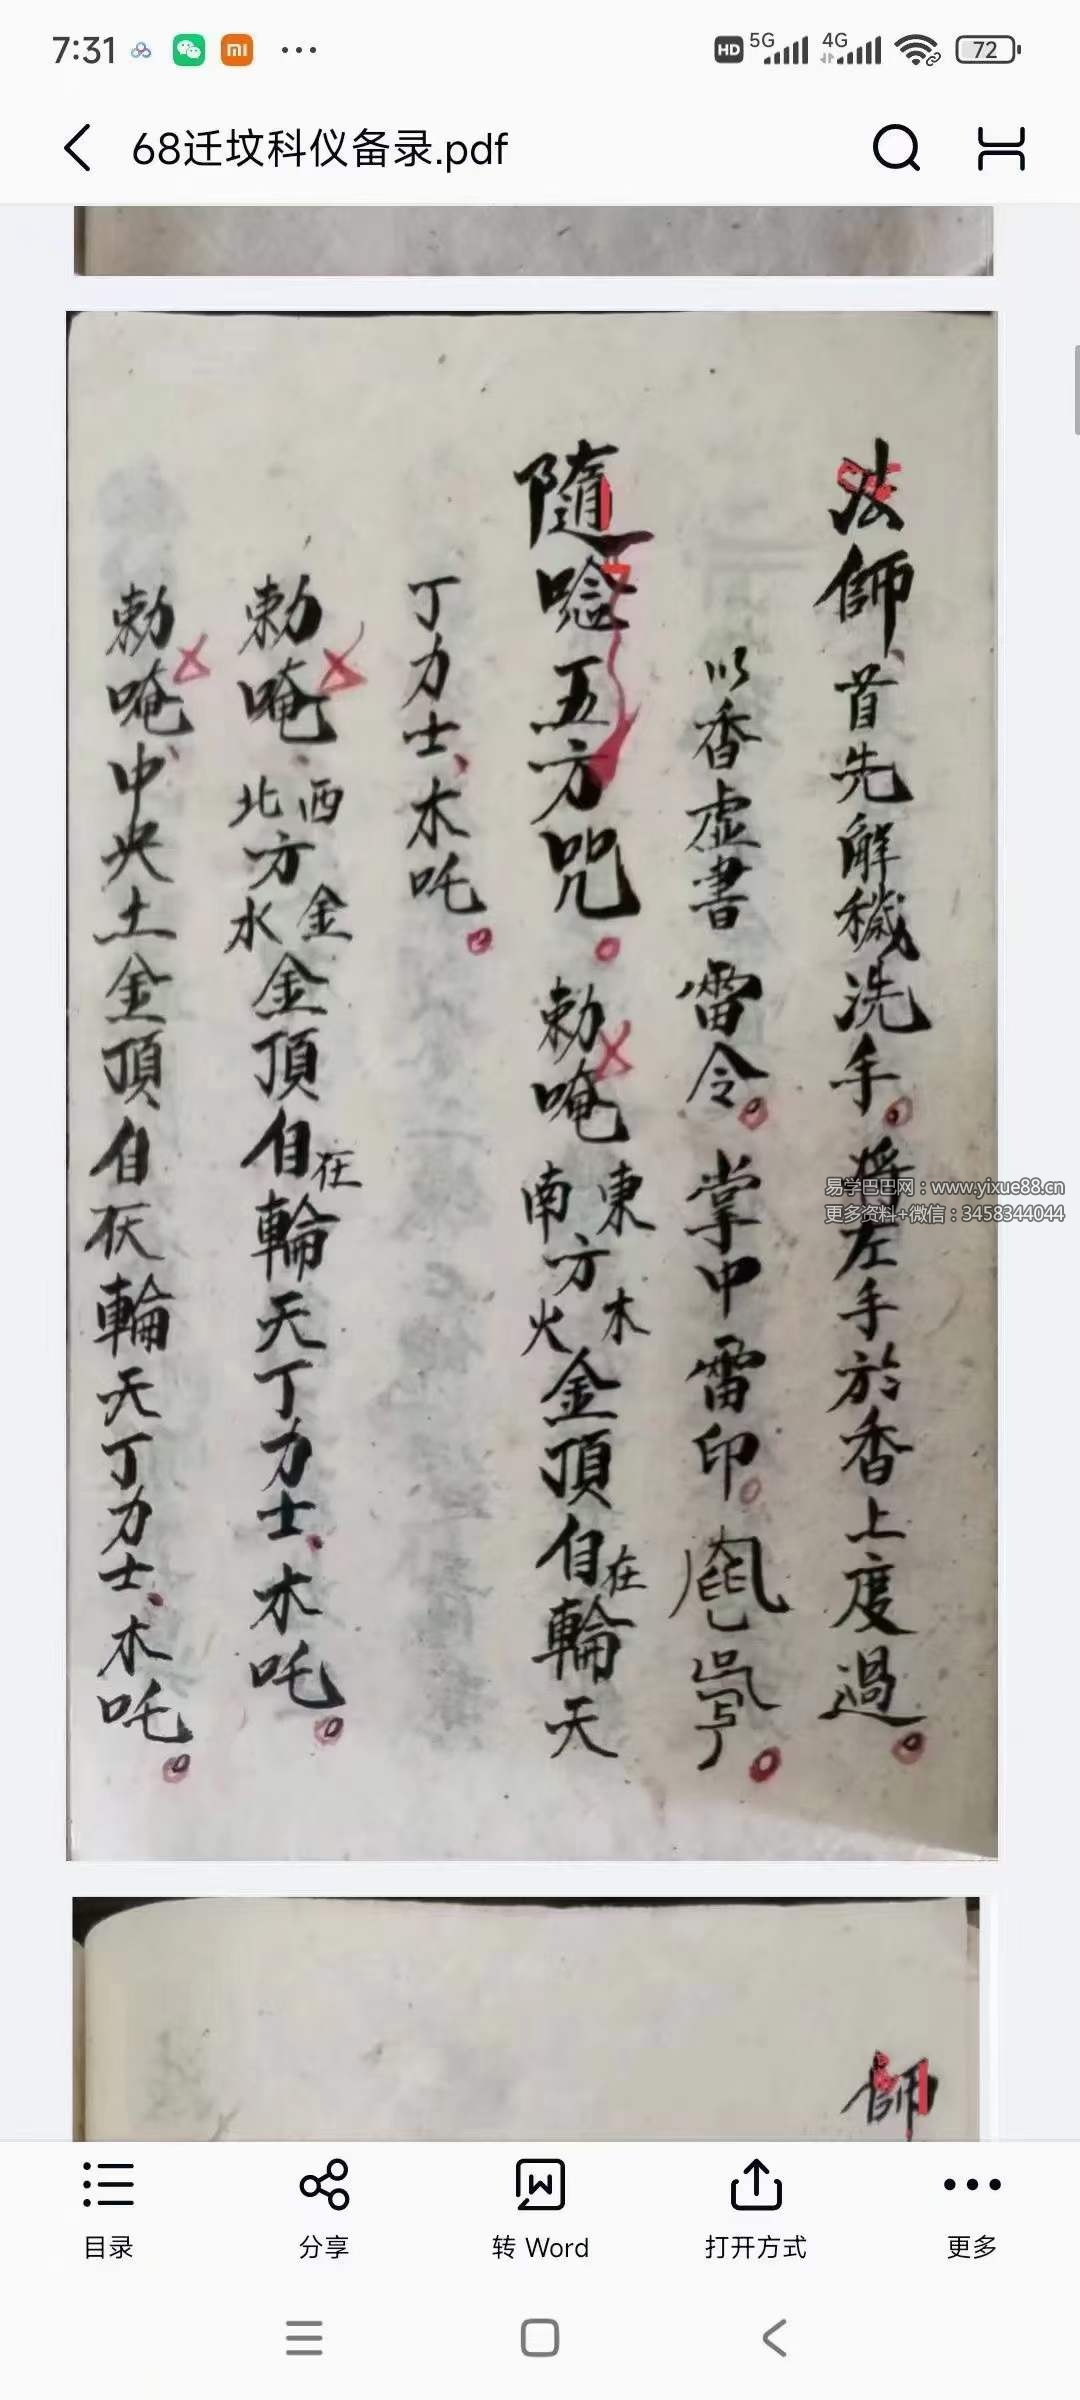 7:31
HD 5G 4G 72
68迁坟科仪备录.pdf
法師首先解穢洗手。將左手於香上度過。
以香虛書雷令。掌中雷印。
隨唸五方咒。勅唵東南方木火金頂自在輪天
丁力士、木吒。
勅唵、西北方金水金頂自在輪天丁力士、木吒。
勅唵中央土金頂自在輪天丁力士、木吒。
易学巴巴网：www.yixue88.cn
更多资料+微信：3458344044
師
目录
分享
转 Word
打开方式
更多